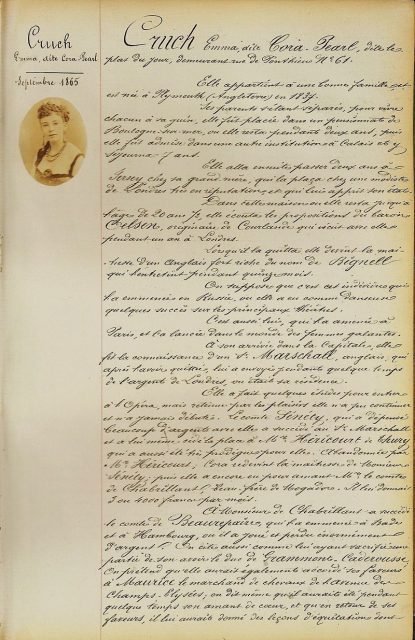 Cruch
Emma, dite Cora Pearl
Septembre 1865
Cruch Emma, dite Cora-Pearl, dite le
plat du jour, demeurant rue de Ponthieu N° 61.
Elle appartient à une bonne famille et
est née à Plymouth (Angleterre) en 1837.
Ses parents s'étant séparés, pour vivre
chacun à sa guise, elle fut placée dans un pensionnat de
Boulogne-sur-mer, où elle resta pendant deux ans, puis
elle fut admise dans une autre institution à Calais et y
séjourna 7 ans.
Elle alla ensuite passer deux ans à
Jersey chez sa grand'mère, qui la plaça chez une modiste
de Londres très en réputation, et qui lui apprit son état.
Dans cette maison où elle resta jusqu'à
l'âge de 20 ans ½, elle écouta les propositions du baron
Celson, originaire de Courlande qui vécut avec elle
pendant un an à Londres.
Lorsqu'il la quitta elle devint la maî-
tresse d'un Anglais fort riche du nom de Bignell
qui l'entretint pendant quinze mois.
On suppose que c'est cet individu qui
l'a emmenée en Russie, où elle a eu comme danseuse
quelques succès sur les principaux théâtres.
C'est aussi lui, qui l'a amenée à
Paris, et l'a lancée dans le monde des femmes galantes.
A son arrivée dans la Capitale, elle
fit la connaissance d'un Sr Marschall, anglais, qui
après l'avoir quittée, lui a envoyé pendant quelque temps
de l'argent de Londres, où était sa résidence.
Elle a fait quelques études pour entrer
à l'Opéra, mais retenue par les plaisirs elle n'a pu continuer
et n'a jamais débuté. Le comte Sencey, qui a dépensé
beaucoup d'argent avec elle a succédé au Sr Marschall
et a lui même cédé la place à Mr Héricourt de Thury
qui a aussi été très prodigue pour elle. Abandonnée par
Mr Héricourt, Cora redevint la maîtresse de Monsieur
Sencey, puis elle a encore eu pour amant Mr le comte
de Chabrillant, beau-frère de Mogador. Il lui donnait
3 ou 4000 francs par mois.
A Monsieur de Chabrillant a succédé
le comte de Beaurepaire, qui l'a emmenée à Bade
et à Hambourg, où il a joué et perdu énormément
d'argent. On cite aussi comme lui ayant sacrifié une
partie de son avoir le duc de Grammont-Caderousse.
On prétend qu'elle aurait également accordé ses faveurs
à Maurice le marchand de chevaux de l'avenue des
Champs-Elysées, on dit même qu'il aurait été pendant
quelque temps son amant de cœur, et qu'en retour de ses
faveurs, il lui aurait donné des leçons d'équitation dont